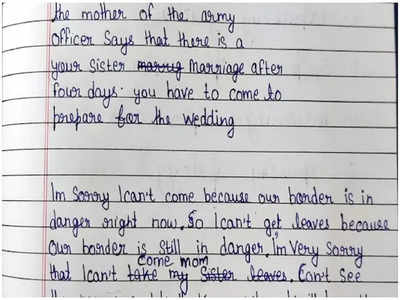 the mother of the army
officer says that there is a
your sister marriage after
four days. you have to come to
prepare for the wedding
Im sorry I can't come because our border is in
danger right now. So I can't get leaves because
Our border is still in danger. I'm Very sorry
come mom
that I can't take my Sister leaves. Can't See